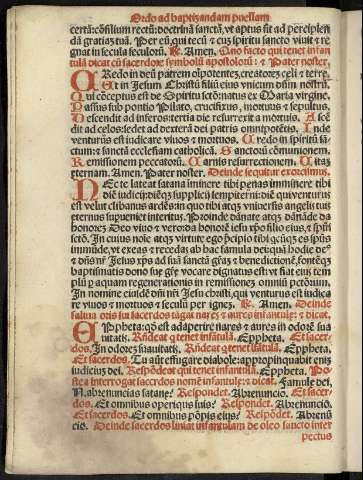 Ordo ad baptizandam puellam
certā: cōsilium rectū: doctrinā sanctā, vt aptus sit ad percipien
dā gratiaz tuā. Per eū, qui tecū ⁊ cuz spiritu sancto viuit ⁊ re
gnat in secula seculorū. ℟. Amen. Uno facto qui tenet infan
tulā dicat cū sacerdote: symbolū apostolorū: ⁊ Pater noster.
CRedo in deū patrem oīpotentez, creatorez celi ⁊ terre.
Et in Jesum Christū filiū eius vnicum dn̄m nostrū.
Qui cōceptus est de Spiritu sctō natus ex Maria virgine.
Passus sub pontio Pilato, crucifixus, mortuus ⁊ sepultus.
Descendit ad inferos: tertia die resurrexit a mortuis. Ascē
dit ad celos: sedet ad dexterā dei patris omnipotētis. Inde
venturus est iudicare viuos ⁊ mortuos. Credo in spiritū sā
ctum: ⁊ sanctā ecclesiam catholicā. Sanctorū cōmunionem.
Remissionem peccatorū. Carnis resurrectionem. Uitaz
eternam. Amen. Pater noster. Deinde sequitur exorcismus.
NEc te lateat satana iminere tibi penas imminere tibi
diē iudicij: diē suppliciū sempiterni: diē qui venturus
est velut clibanus ardēs: in quo tibi atqz vniuersis angelis tuis
eternus superueniet interitus. Proinde dānate atqz dānāde da
honorez Deo viuo ⁊ vero: da honorē iesu xpō filio eius, ⁊ spūi
sctō. In cuius noīe atqz virtute ego p̄cipio tibi quicūqz es spūs
immūde, vt exeas ⁊ recedas ab hac famula dei: quā hodie de⁹
⁊ dn̄s nr̄ Jesus xpūs ad suā sanctā grāz ⁊ benedictionē, fontēqz
baptismatis dono sue grē vocare dignatus est: vt fiat eius tem
plū p aquam regenerationis in remissionez omniū pctōrum.
In nomine eiusdē dn̄i nr̄i Jesu christi, qui venturus est iudica
re viuos ⁊ mortuos ⁊ seculū per ignez. ℟. Amen. Deinde
saliua oris sui sacerdos tāgat nares ⁊ aures infantule: ⁊ dicat.
EPpheta: qd̄ est adaperire nares ⁊ aures in odorē sua
uitatis. Rn̄deat q tenet infātulā. Eppheta. Et sacer
dos. In odorez suauitatis. Rn̄deat q tenet īfātulā. Eppheta.
Et sacerdos. Tu aūt effugare diabole: appropinquabit enīz
iudiciuz dei. Respōdeat qui tenet infantulā. Eppheta. Po
stea interrogat sacerdos nomē infantule: ⁊ dicat. Famule dei,
N. abrenuncias satane? Respondet. Abrenuncio. Et sacer-
dos. Et omnibus operiqus suis? Respondet. Abrenuncio.
Et sacerdos. Et omnibus pōpis eius? Respōdet. Abrenū
cio. Deinde sacerdos liniat infantulam de oleo sancto inter
pectus